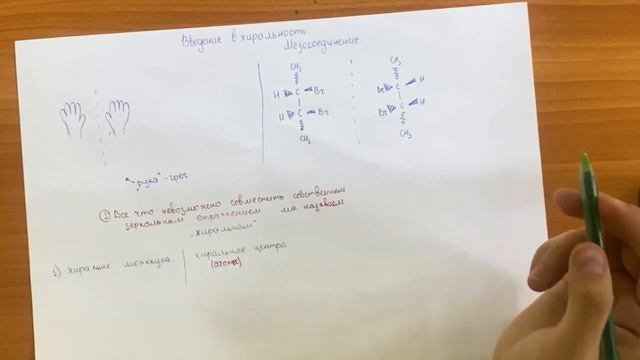 Введение в хиральность
Мезосоединение
CH₃
H C Br
H C Br
CH₃
CH₃
Br C H
Br C H
CH₃
"рука" - греч
① Все что невозможно совместить собственным
зеркальным отражением мы называем
"хиральным"
1) хиральные молекула | хиральные центра
(атомы)